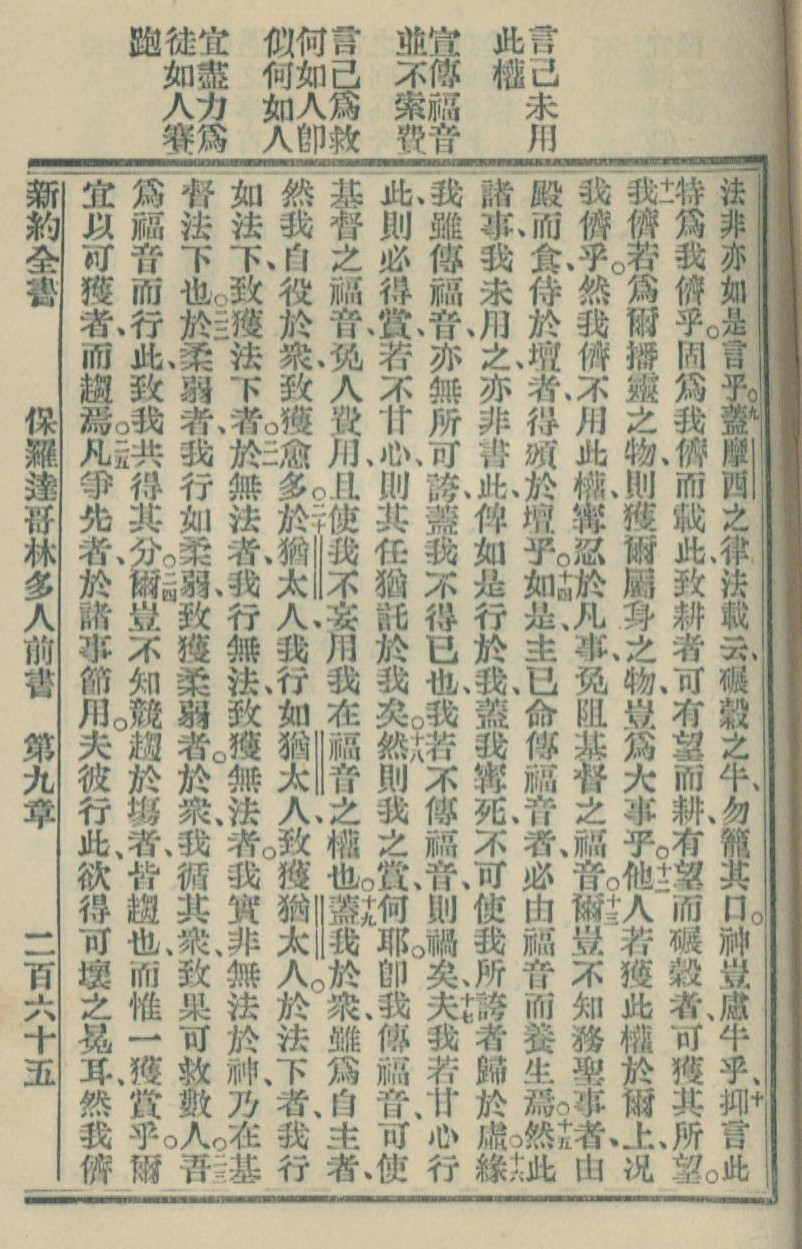 言己未用
此權
宣傳福音
並不索費
言己爲救
何如人卽
似何如人
宜盡力爲
徒如人賽
跑
法非亦如是言乎。九蓋摩西之律法載云、碾穀之牛、勿籠其口。神豈慮牛乎、十抑言此
特爲我儕乎。固爲我儕而載此、致耕者可有望而耕、有望而碾穀者、可獲其所望。
十一我儕若爲爾播靈之物、則獲爾屬身之物、豈爲大事乎。十二他人若獲此權於爾上、況
我儕乎。然我儕不用此權、寧忍於凡事、免阻基督之福音。十三爾豈不知務聖事者、由
殿而食、侍於壇者、得頒於壇乎。十四如是、主已命傳福音者、必由福音而養生焉。十五然此
諸事、我未用之、亦非書此、俾如是行於我、蓋我寧死、不可使我所誇者歸於虛。十六緣
我雖傳福音、亦無所可誇、蓋我不得已也、我若不傳福音、則禍矣。十七夫我若甘心行
此、則必得賞、若不甘心、則其任猶託於我矣。十八然則我之賞、何耶。卽我傳福音、可使
基督之福音、免人費用、且使我不妄用我在福音之權也。十九蓋我於衆、雖爲自主者、
然我自役於衆、致獲愈多。二十於猶太人、我行如猶太人、致獲猶太人。於法下者、我行
如法下、致獲法下者。二一於無法者、我行無法、致獲無法者。我實非無法於神、乃在基
督法下也。二二於柔弱者、我行如柔弱、致獲柔弱者。於衆、我循其衆、致果可救數人。二三吾
爲福音而行此、致我共得其分。二四爾豈不知競趨於塲者、皆趨也、而惟一獲賞乎。爾
宜以可獲者、而趨焉。二五凡爭先者、於諸事節用。夫彼行此、欲得可壞之冕耳、然我儕
新約全書　保羅達哥林多人前書　第九章　二百六十五